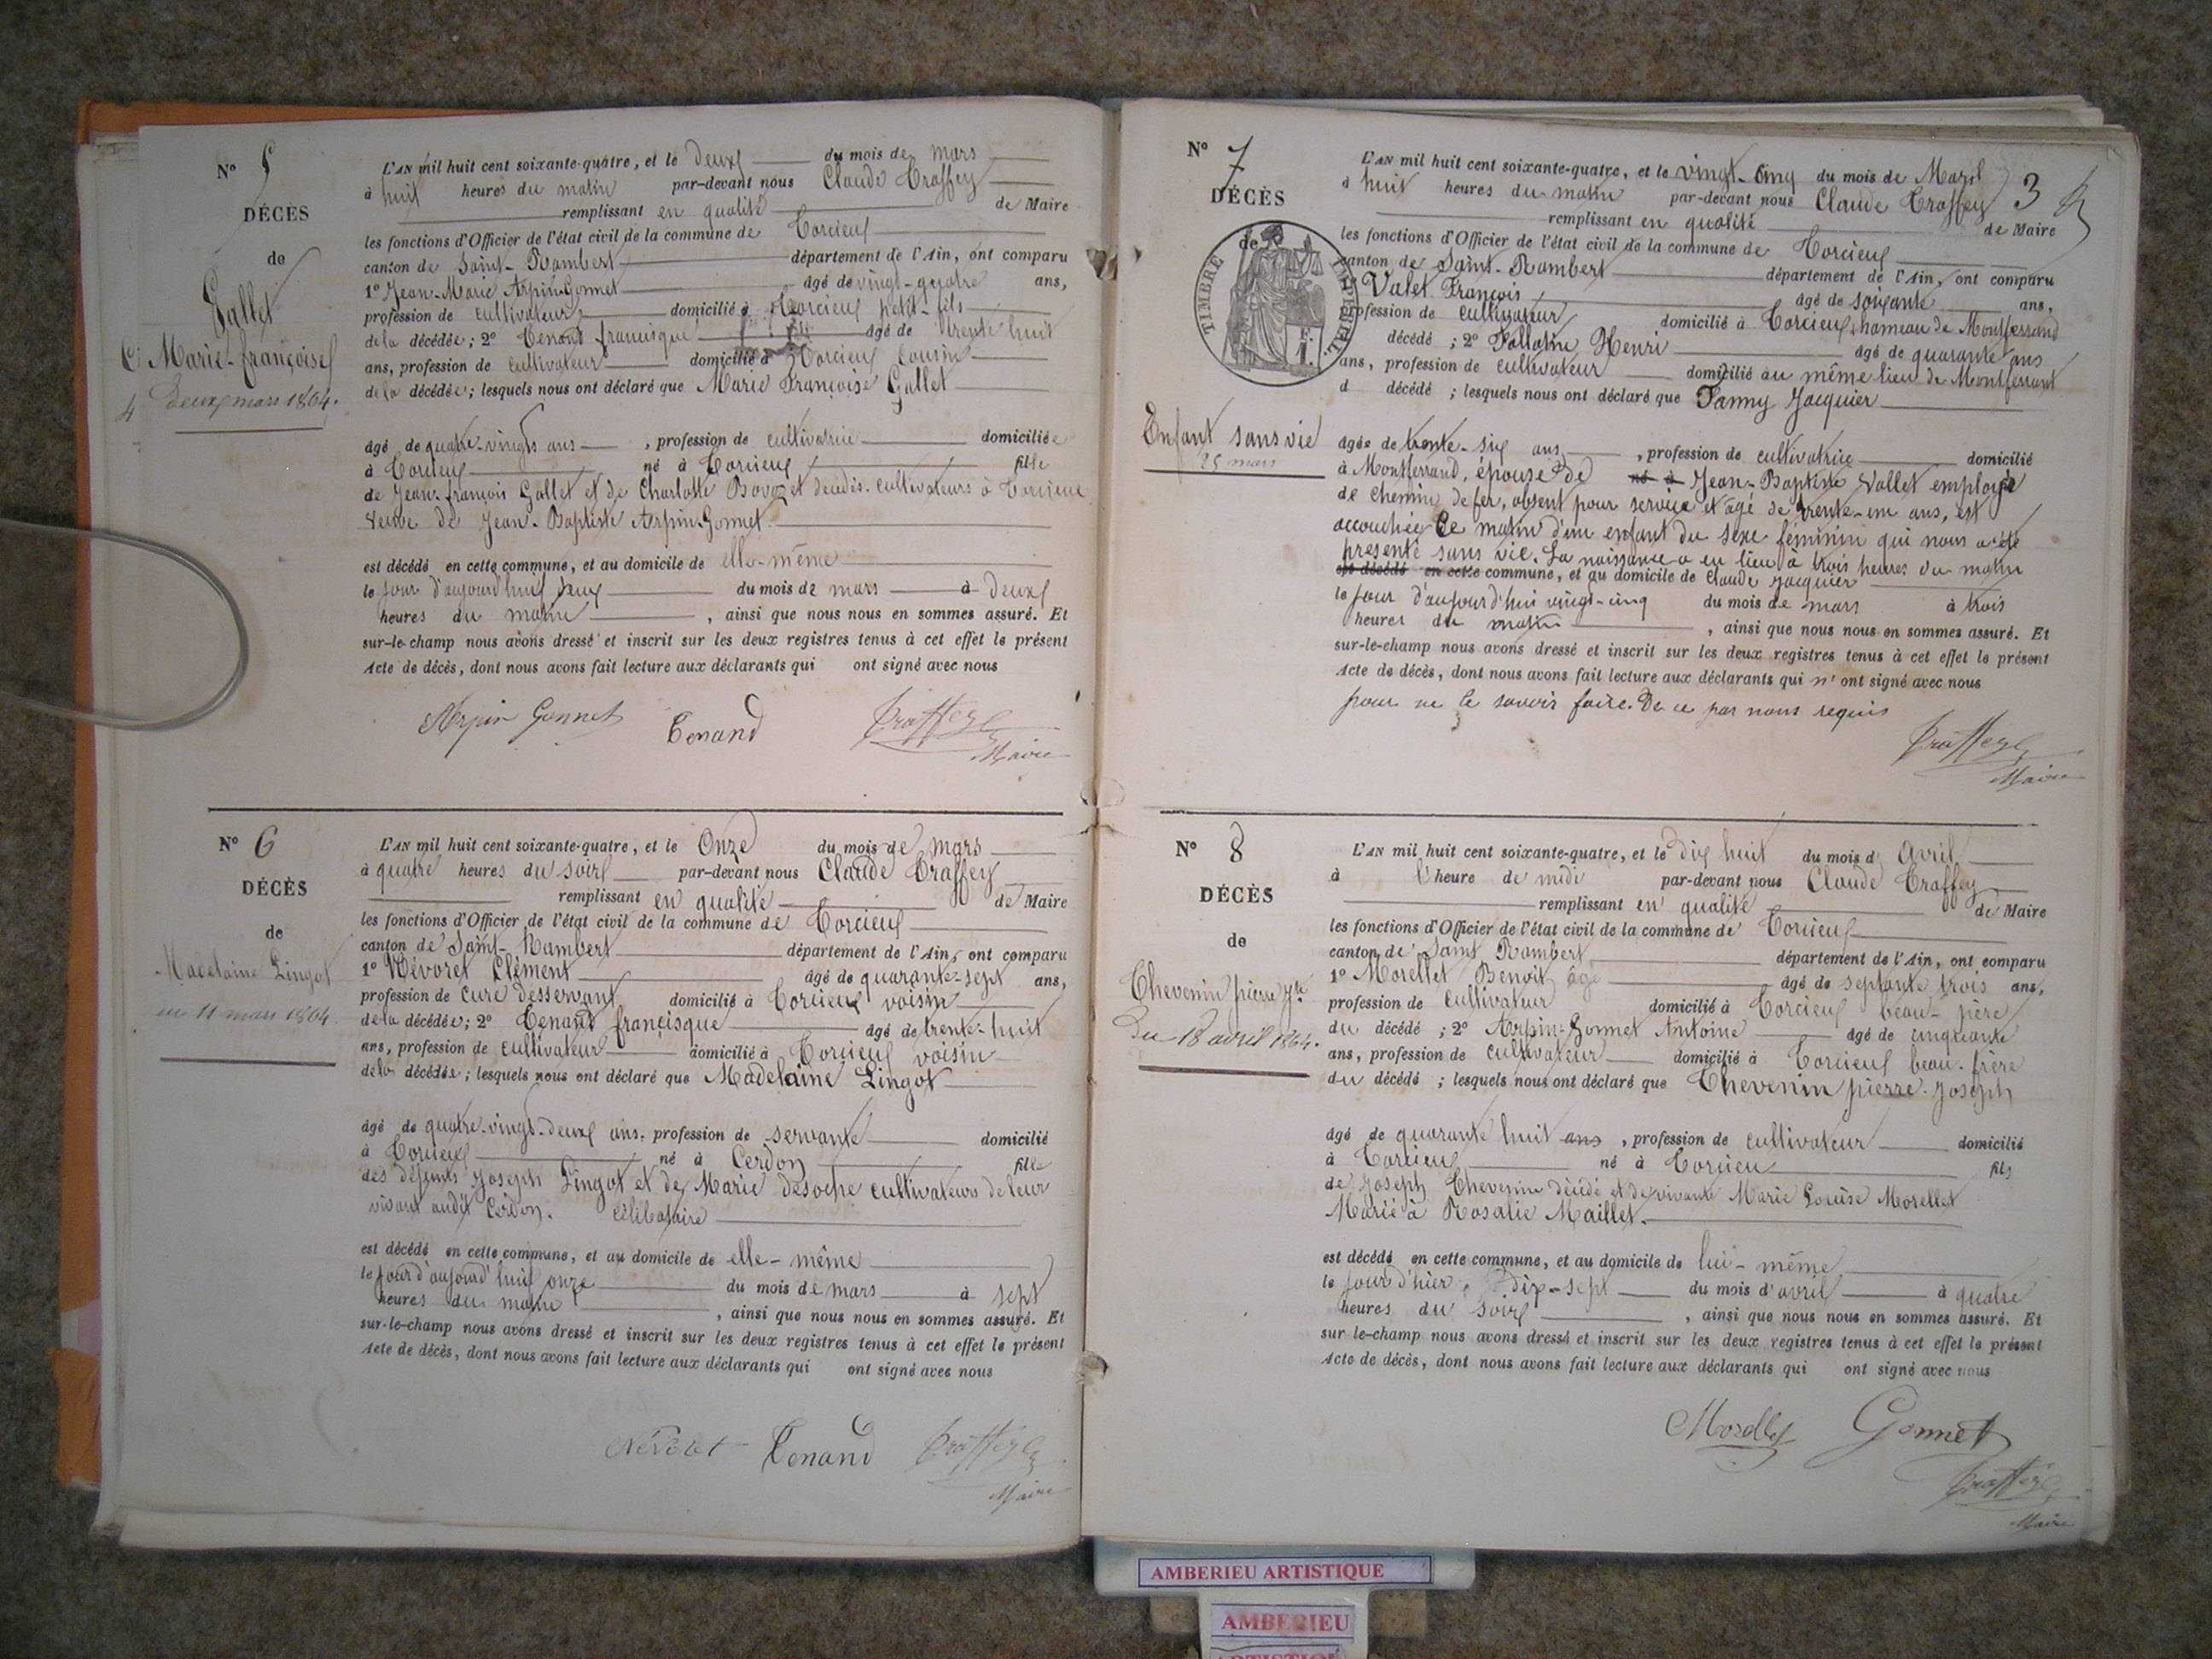 N° 5
DÉCÈS
de
Gallet
Marie-françoise
deux mars 1864.
L'AN mil huit cent soixante-quatre, et le deux du mois de mars
à huit heures du matin par-devant nous Claude Traffey
remplissant en qualité de Maire
les fonctions d'Officier de l'état civil de la commune de Torcieu
canton de Saint-Rambert département de l'Ain, ont comparu
1° Jean-Marie Arpin-Gonnet âgé de vingt-quatre ans,
profession de cultivateur domicilié à Torcieu petit-fils
de la décédée ; 2° Tenand françisque âgé de trente huit
ans, profession de cultivateur domicilié à Torcieu cousin
de la décédée ; lesquels nous ont déclaré que Marie Françoise Gallet
âgé de quatre-vingts ans , profession de cultivatrice domiciliée
à Torcieu né à Torcieu fille
de Jean-françois Gallet et de Charlotte Bovozet décédés cultivateurs à Torcieu
veuve de Jean-Baptiste Arpin-Gonnet.
est décédé en cette commune, et au domicile de elle-même
le jour d'aujourd'hui deux du mois de mars à deux
heures du matin , ainsi que nous nous en sommes assuré. Et
sur-le-champ nous avons dressé et inscrit sur les deux registres tenus à cet effet le présent
Acte de décès, dont nous avons fait lecture aux déclarants qui ont signé avec nous
Arpin Gonnet Tenand Traffey
Maire
N° 6
DÉCÈS
de
Madelaine Lingot
11 mars 1864.
L'AN mil huit cent soixante-quatre, et le Onze du mois de mars
à quatre heures du soir par-devant nous Claude Traffey
remplissant en qualité de Maire
les fonctions d'Officier de l'état civil de la commune de Torcieu
canton de Saint-Rambert département de l'Ain, ont comparu
1° Névoret Clément âgé de quarante-sept ans,
profession de curé desservant domicilié à Torcieu voisin
de la décédée ; 2° Tenand françisque âgé de trente-huit
ans, profession de cultivateur domicilié à Torcieu voisin
de la décédée ; lesquels nous ont déclaré que Madelaine Lingot
âgé de quatre-vingt-deux ans, profession de servante domicilié
à Torcieu né à Cerdon fille
des défunts Joseph Lingot et de Marie cultivateurs de leur
vivant audit Cerdon. célibataire
est décédé en cette commune, et au domicile de elle-même
le jour d'aujourd'hui onze du mois de mars à sept
heures du matin , ainsi que nous nous en sommes assuré. Et
sur-le-champ nous avons dressé et inscrit sur les deux registres tenus à cet effet le présent
Acte de décès, dont nous avons fait lecture aux déclarants qui ont signé avec nous
Névoret Tenand Traffey
Maire
N° 7
DÉCÈS
de
TIMBRE IMPÉRIAL
F. 1.
Enfant sans vie
25 mars
3
L'AN mil huit cent soixante-quatre, et le vingt-cinq du mois de Mars
à huit heures du matin par-devant nous Claude Traffey
remplissant en qualité de Maire
les fonctions d'Officier de l'état civil de la commune de Torcieu
canton de Saint-Rambert département de l'Ain, ont comparu
Valet François âgé de soixante ans,
profession de cultivateur domicilié à Torcieu, hameau de Montferrand
décédé ; 2° Pallatin Henri âgé de quarante ans
ans, profession de cultivateur domicilié au même lieu de Montferrand
d décédé ; lesquels nous ont déclaré que Fanny Jacquier
âgée de trente-six ans , profession de cultivatrice domicilié
à Montferrand, épouse de né à Jean-Baptiste Vallet employé
de chemin de fer, absent pour service et âgé de trente-un ans, est
accouchée ce matin d'un enfant du sexe féminin qui nous a été
présenté sans vie. La naissance a eu lieu à trois heures du matin
est décédé en cette commune, et au domicile de Claude Jacquier
le jour d'aujourd'hui vingt-cinq du mois de mars à trois
heures du matin , ainsi que nous nous en sommes assuré. Et
sur-le-champ nous avons dressé et inscrit sur les deux registres tenus à cet effet le présent
Acte de décès, dont nous avons fait lecture aux déclarants qui n'ont signé avec nous
pour ne le savoir faire. De ce par nous requis
Traffey
Maire
N° 8
DÉCÈS
de
Chevenin pierre Jh
Du 18 avril 1864.
L'AN mil huit cent soixante-quatre, et le dix huit du mois d'Avril
à l'heure de midi par-devant nous Claude Traffey
remplissant en qualité de Maire
les fonctions d'Officier de l'état civil de la commune de Torcieu
canton de Saint Rambert département de l'Ain, ont comparu
1° Morellet Benoit âgé âgé de septante trois ans,
profession de cultivateur domicilié à Torcieu beau-père
du décédé ; 2° Arpin-Gonnet Antoine âgé de cinquante
ans, profession de cultivateur domicilié à Torcieu beau-frère
du décédé ; lesquels nous ont déclaré que Chevenin pierre-Joseph
âgé de quarante huit ans , profession de cultivateur domicilié
à Torcieu né à Torcieu fils
de Joseph Chevenin décédé et de vivante Marie Louise Morellet
Marié à Rosalie Maillet.
est décédé en cette commune, et au domicile de lui-même
le jour d'hier, dix-sept du mois d'avril à quatre
heures du soir , ainsi que nous nous en sommes assuré. Et
sur le-champ nous avons dressé et inscrit sur les deux registres tenus à cet effet le présent
Acte de décès, dont nous avons fait lecture aux déclarants qui ont signé avec nous
Morellet Gonnet
Traffey
Maire
AMBERIEU ARTISTIQUE
AMBERIEU
ARTISTIQUE